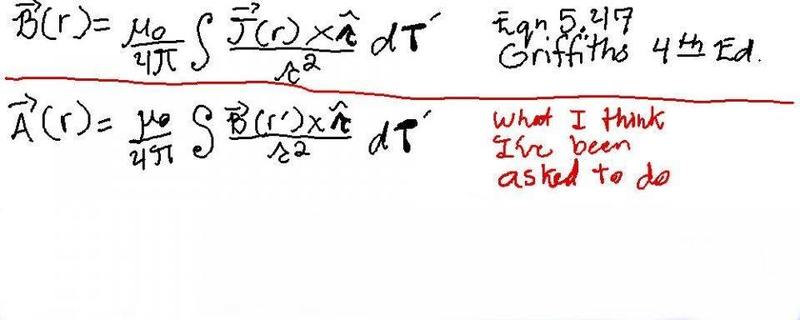 B⃗(r) = μ₀/4π ∫ J⃗(r) × r̂ / r² dτ′ Eqn 5.47
Griffiths 4th Ed.
A⃗(r) = μ₀/4π ∫ B⃗(r′) × r̂ / r² dτ′ What I think
I've been
asked to do